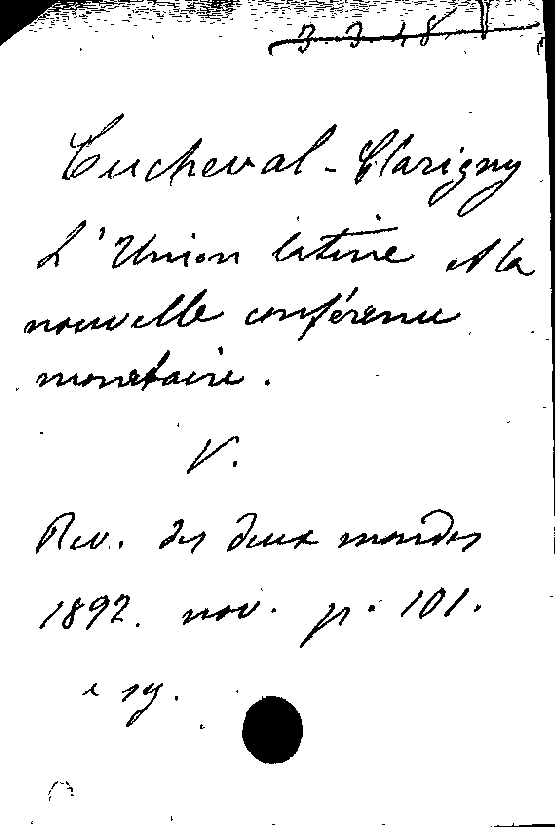 3.3.48
Cucheval-Clarigny
L'Union latine et la
nouvelle conférence
monetaire.
V.
Rev. des deux mondes
1892. nov. p. 101.
e sg.